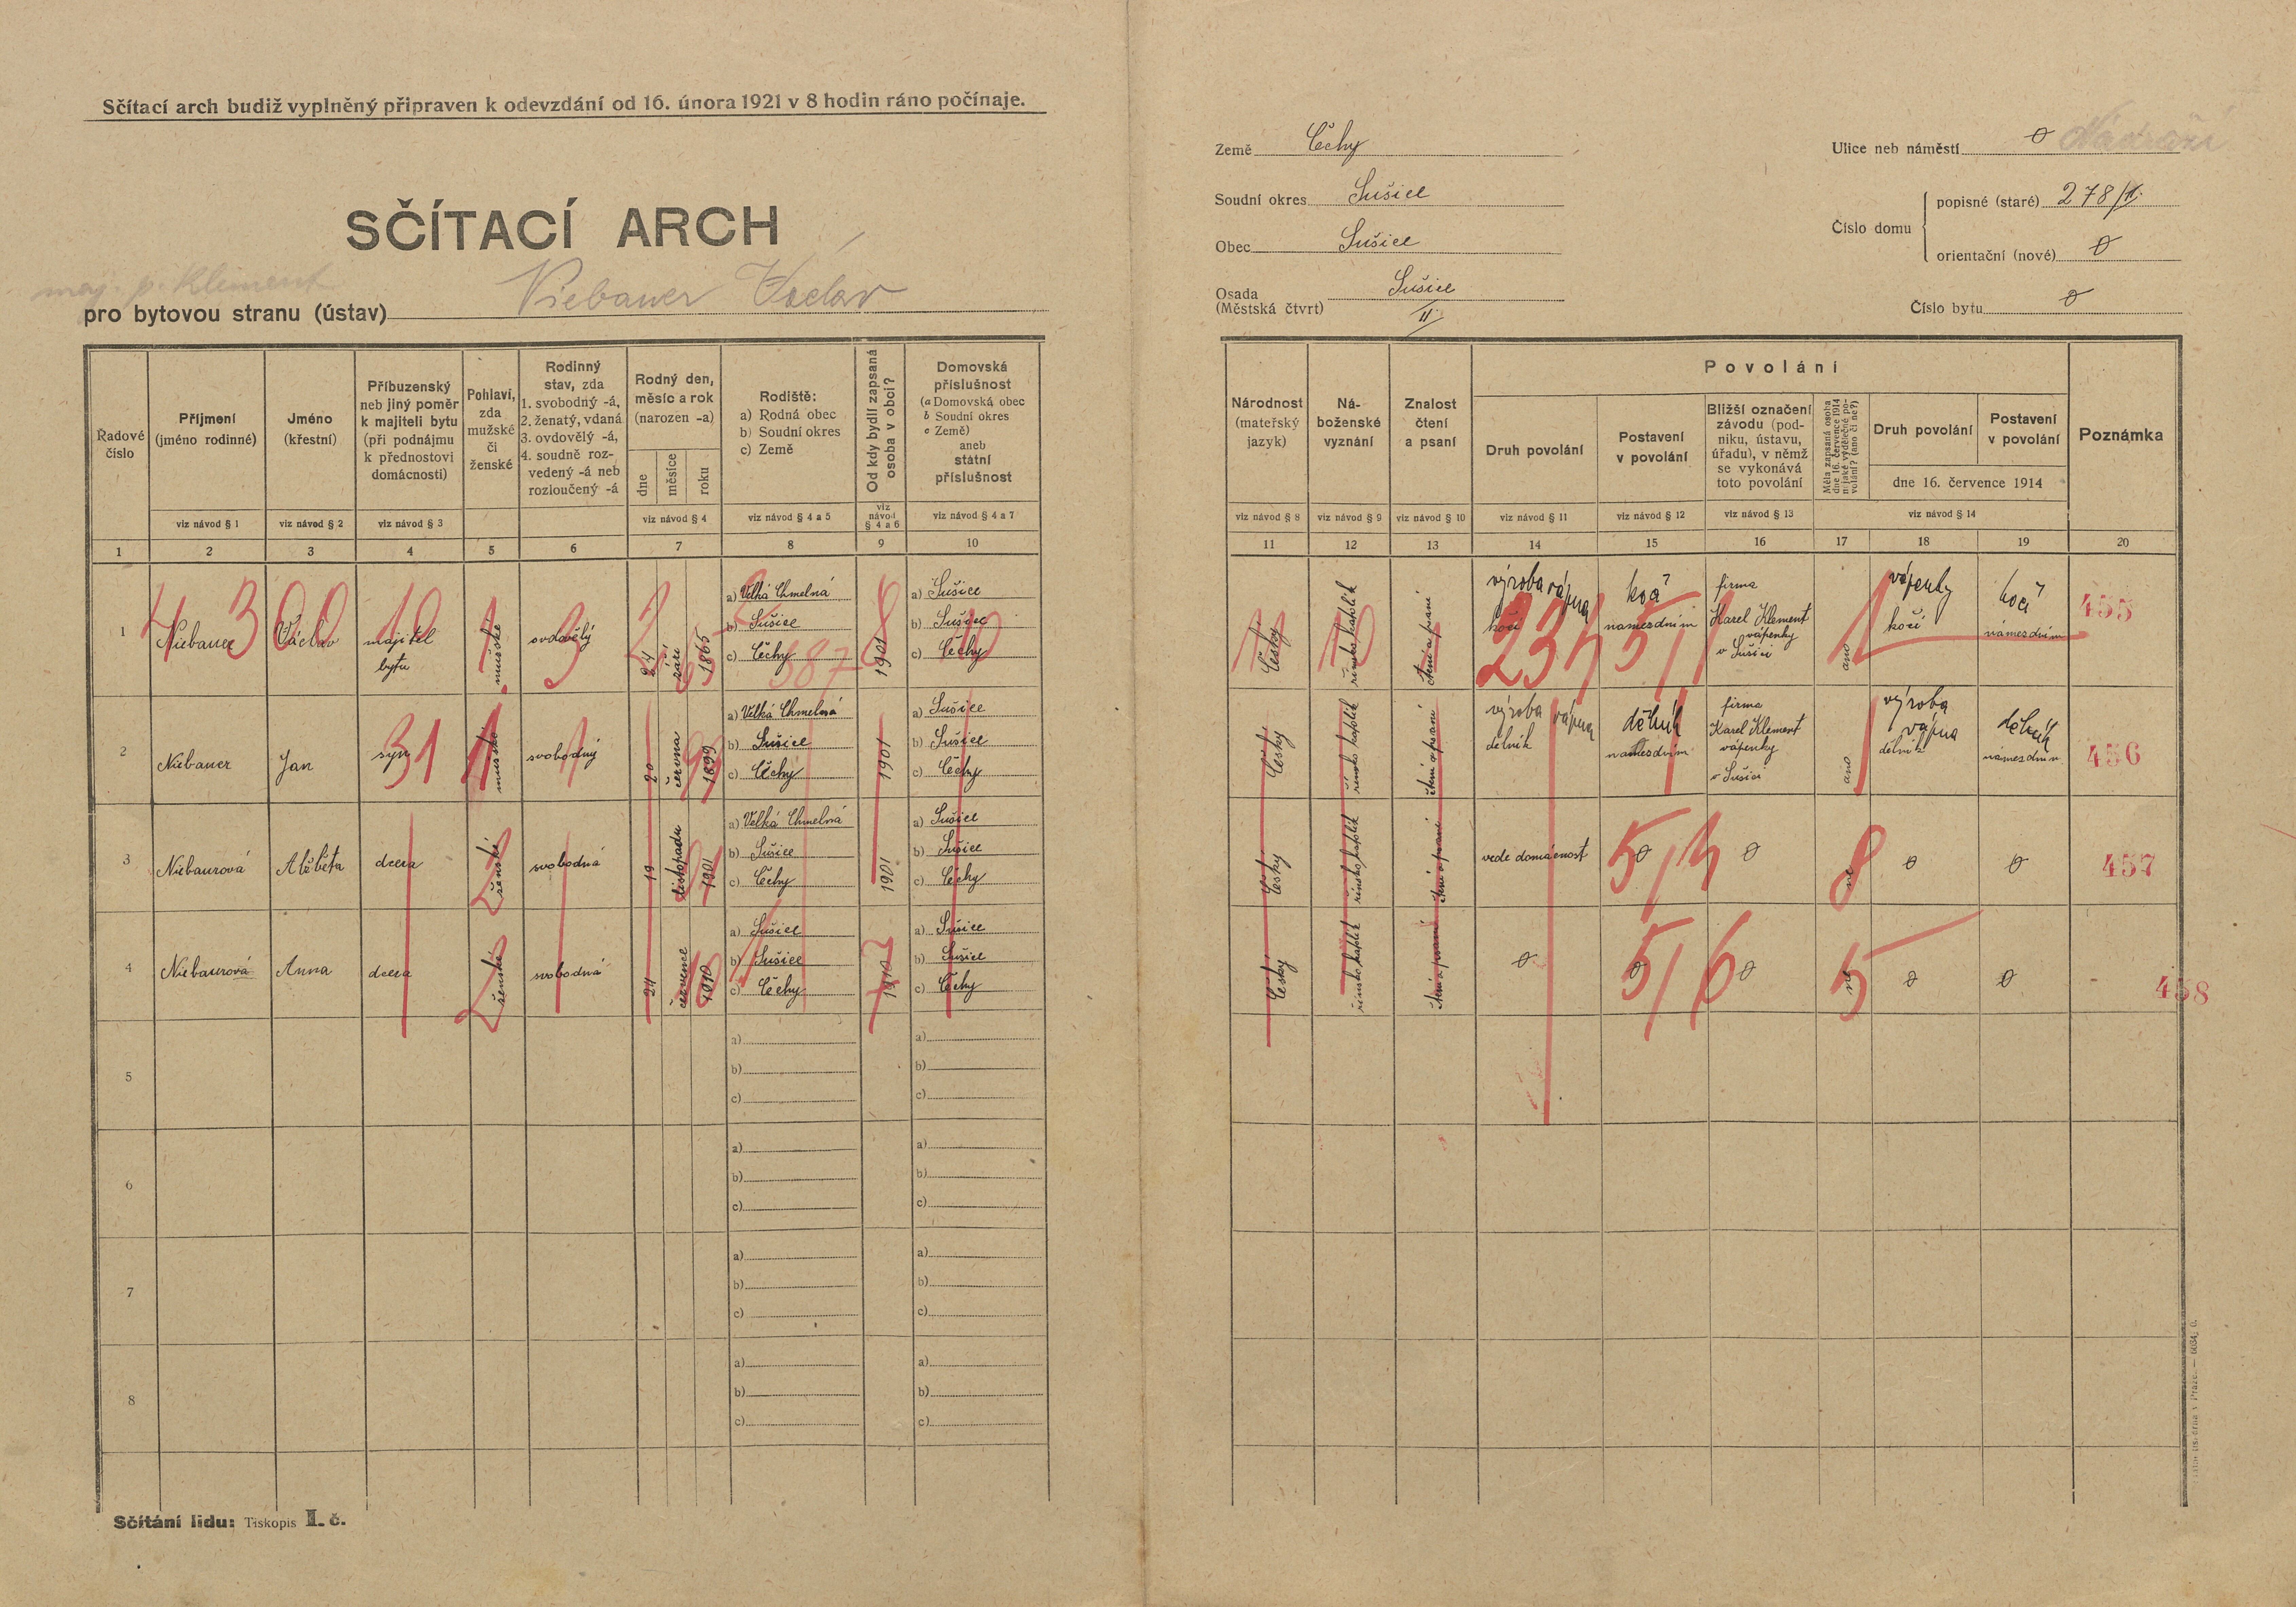 Sčítací arch budiž vyplněný připraven k odevzdání od 16. února 1921 v 8 hodin ráno počínaje.
SČÍTACÍ ARCH
maj. p. Kliment
pro bytovou stranu (ústav) Niebauer Václav
Země Čechy
Soudní okres Sušice
Obec Sušice
Osada (Městská čtvrt) Sušice II.
Ulice neb náměstí 0 Nádraží
Číslo domu
popisné (staré) 278/II.
orientační (nové) 0
Číslo bytu 0
Řadové číslo
Příjmení (jméno rodinné)
Jméno (křestní)
Příbuzenský neb jiný poměr k majiteli bytu (při podnájmu k přednostovi domácnosti)
Pohlaví, zda mužské či ženské
Rodinný stav, zda 1. svobodný -á, 2. ženatý, vdaná 3. ovdovělý -á, 4. soudně rozvedený -á neb rozloučený -á
Rodný den, měsíc a rok (narozen -a)
dne měsíce roku
Rodiště: a) Rodná obec b) Soudní okres c) Země
Od kdy bydlí zapsaná osoba v obci?
Domovská příslušnost (a Domovská obec b Soudní okres c Země) aneb státní příslušnost
viz návod § 1 viz návod § 2 viz návod § 3 viz návod § 4 viz návod § 4 a 5 viz návod § 4 a 6 viz návod § 4 a 7
1 2 3 4 5 6 7 8 9 10
Národnost (mateřský jazyk)
Náboženské vyznání
Znalost čtení a psaní
Povolání
Druh povolání
Postavení v povolání
Bližší označení závodu (podniku, ústavu, úřadu), v němž se vykonává toto povolání
Měla zapsaná osoba dne 16. července 1914 nějaké výdělečné povolání? (ano či ne?)
Druh povolání
Postavení v povolání
dne 16. července 1914
Poznámka
viz návod § 8 viz návod § 9 viz návod § 10 viz návod § 11 viz návod § 12 viz návod § 13 viz návod § 14
11 12 13 14 15 16 17 18 19 20
1 Niebauer Václav majitel bytu mužské ovdovělý 24 září 1865 a) Velká Chmelná b) Sušice c) Čechy 1901 a) Sušice b) Sušice c) Čechy
český římsko katolík čtení a psaní výroba vápna kočí kočí námezdním firma Karel Klement vápenky v Sušici ano vápenky kočí kočí námezdním 455
2 Niebauer Jan syn mužské svobodný 20 června 1899 a) Velká Chmelná b) Sušice c) Čechy 1901 a) Sušice b) Sušice c) Čechy
český římsko katolík čtení a psaní výroba vápna dělník dělník námezdním firma Karel Klement vápenky v Sušici ano výroba vápna dělník dělník námezdním 456
3 Niebaurová Alžběta dcera ženské svobodná 19 listopadu 1901 a) Velká Chmelná b) Sušice c) Čechy 1901 a) Sušice b) Sušice c) Čechy
český římsko katolík čtení a psaní vede domácnost 0 0 ne 0 0 457
4 Niebaurová Anna dcera ženské svobodná 24 července 1910 a) Sušice b) Sušice c) Čechy 1910 a) Sušice b) Sušice c) Čechy
český římsko katolík čtení a psaní 0 0 0 ne 0 0 458
5 a) b) c) a) b) c)
6 a) b) c) a) b) c)
7 a) b) c) a) b) c)
8 a) b) c) a) b) c)
Sčítání lidu: Tiskopis I. č.